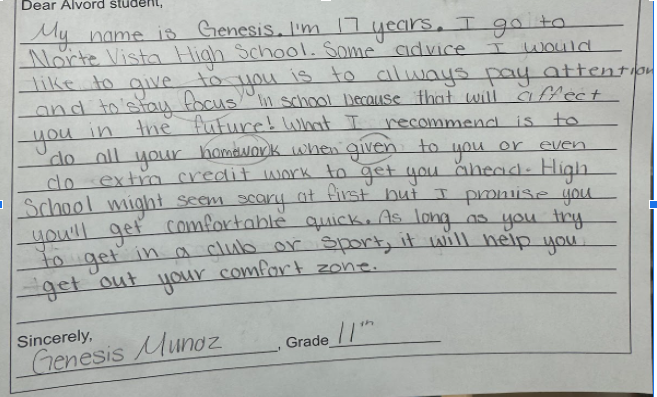 Dear Alvord student,
My name is Genesis. I'm 17 years. I go to
Norte Vista High School. Some advice I would
like to give to you is to always pay attention
and to stay focus in school because that will affect
you in the future! What I recommend is to
do all your homework when given to you or even
do extra credit work to get you ahead. High
School might seem scary at first but I promise you
you'll get comfortable quick. As long as you try
to get in a club or sport, it will help you
get out your comfort zone.
Sincerely,
Genesis Munoz, Grade 11th